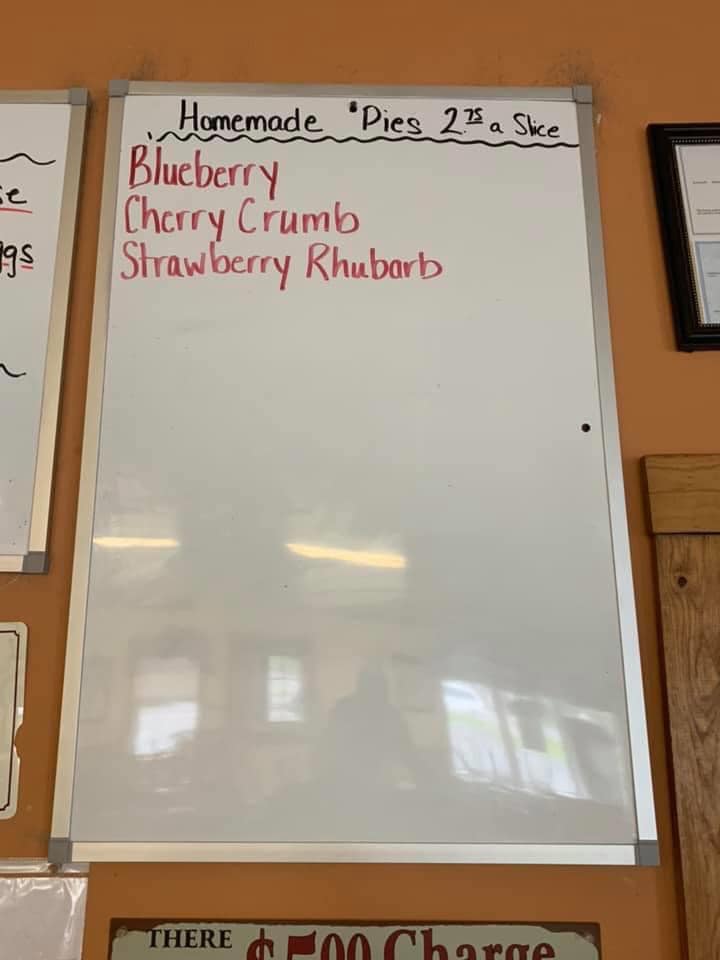 Homemade Pies 2.75 a Slice
Blueberry
Cherry Crumb
Strawberry Rhubarb
THERE $5.00 Charge